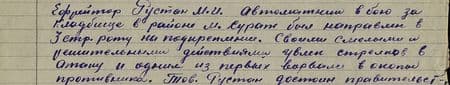 Ефрейтор Густан М.И. Автоматчик в бою за
кладбище в районе м. Курат был направлен в
3 стр. роту на подкрепление. Своими смелыми и
решительными действиями увлек стрелков в
атаку и одним из первых ворвался в окопы
противника. Тов. Густан достоин правительст-